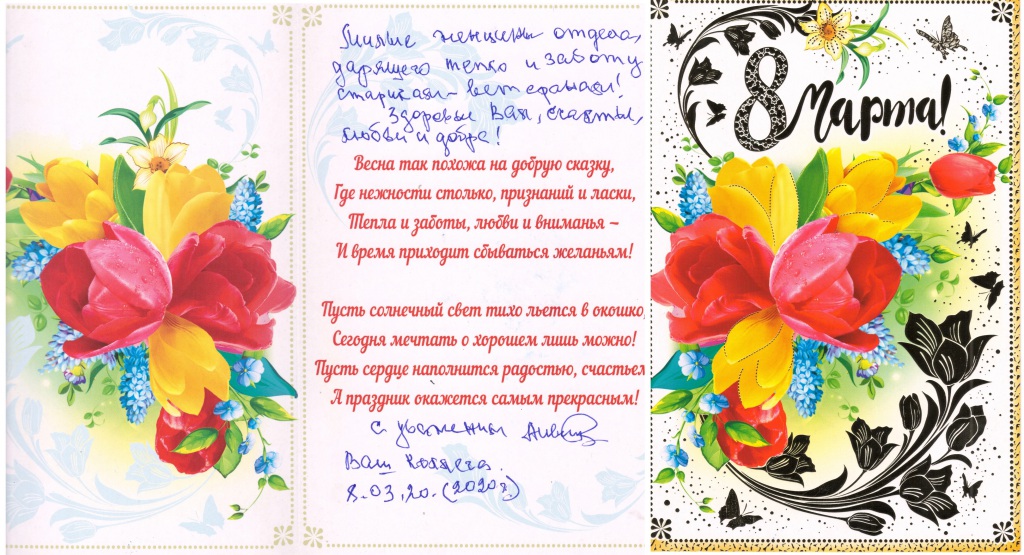 Милые женщины отдела,
дарящего тепло и заботу
старикам - ветеранам!
Здоровья Вам, счастья,
любви и добра!
Весна так похожа на добрую сказку,
Где нежности столько, признаний и ласки,
Тепла и заботы, любви и вниманья –
И время приходит сбываться желаньям!
Пусть солнечный свет тихо льется в окошко,
Сегодня мечтать о хорошем лишь можно!
Пусть сердце наполнится радостью, счастьем
А праздник окажется самым прекрасным!
С уважением
Ваш коллега.
8.03.20. (2020г)
8 Марта!